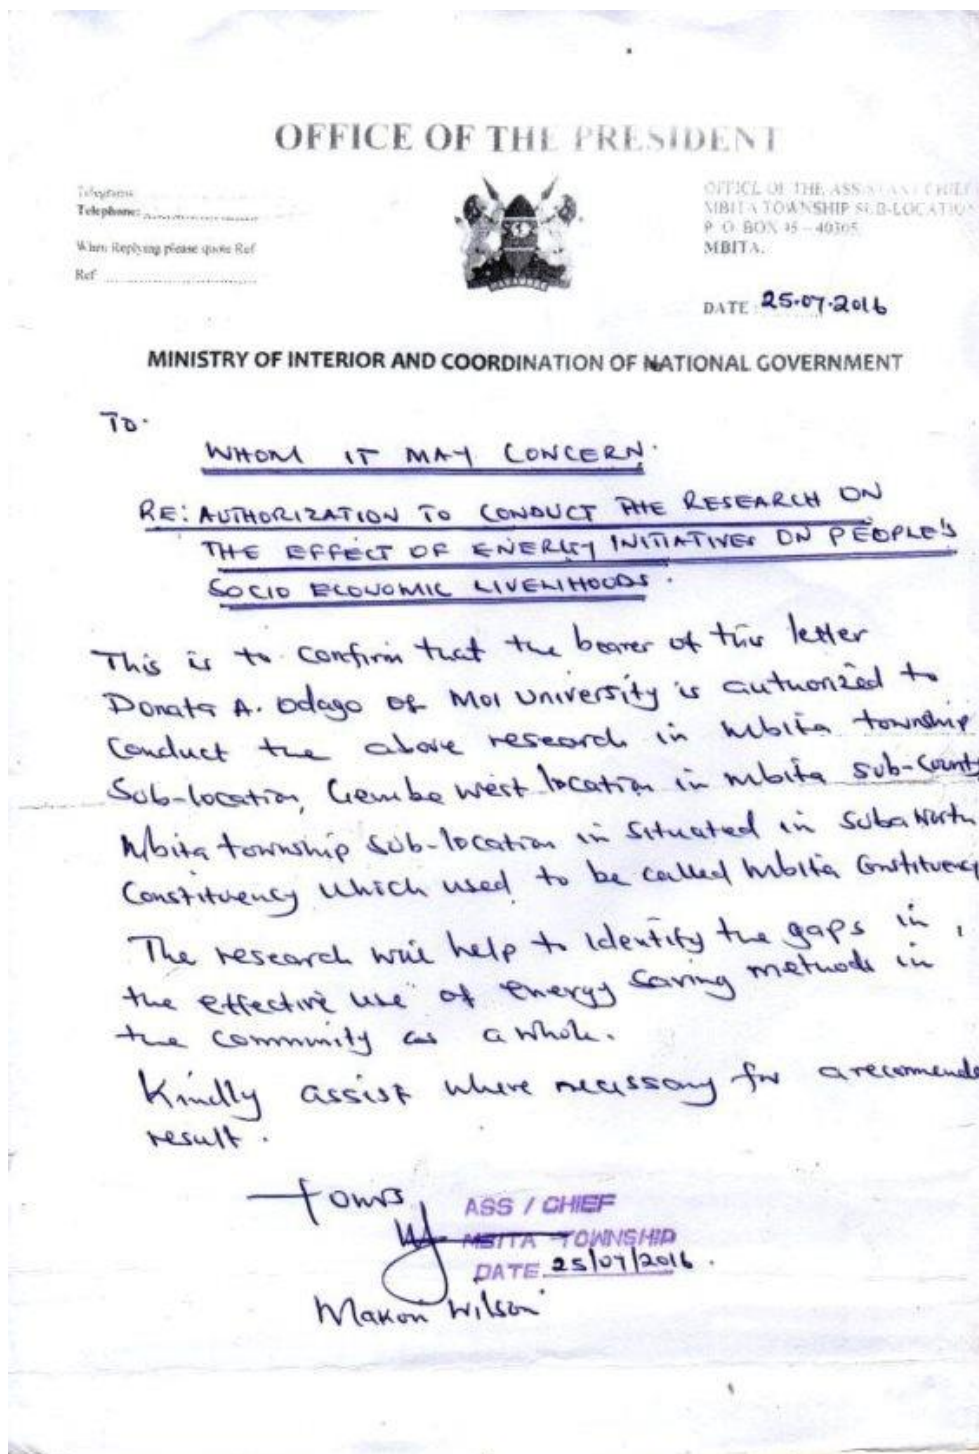 OFFICE OF THE PRESIDENT
Telegrams
Telephone:
When Replying please quote Ref
Ref
OFFICE OF THE ASSISTANT CHIEF
MBITA TOWNSHIP SUB-LOCATION
P. O. BOX 45 – 40305
MBITA.
DATE 25.07.2016
MINISTRY OF INTERIOR AND COORDINATION OF NATIONAL GOVERNMENT
TO.
WHOM IT MAY CONCERN.
RE: AUTHORIZATION TO CONDUCT THE RESEARCH ON
THE EFFECT OF ENERGY INITIATIVES ON PEOPLE'S
SOCIO ECONOMIC LIVELIHOODS.
This is to confirm that the bearer of this letter
Donata A. Odago of Moi University is authorized to
Conduct the above research in Mbita township
Sub-location, Gembe west location in Mbita sub-County
Mbita township sub-location in situated in Suba North
Constituency which used to be called Mbita Constituency
The research will help to identify the gaps in
the effective use of energy saving methods in
the community as a whole.
Kindly assist where necessary for a recommende
result.
Yours
ASS / CHIEF
MBITA TOWNSHIP
DATE 25/07/2016.
Makori Wilson